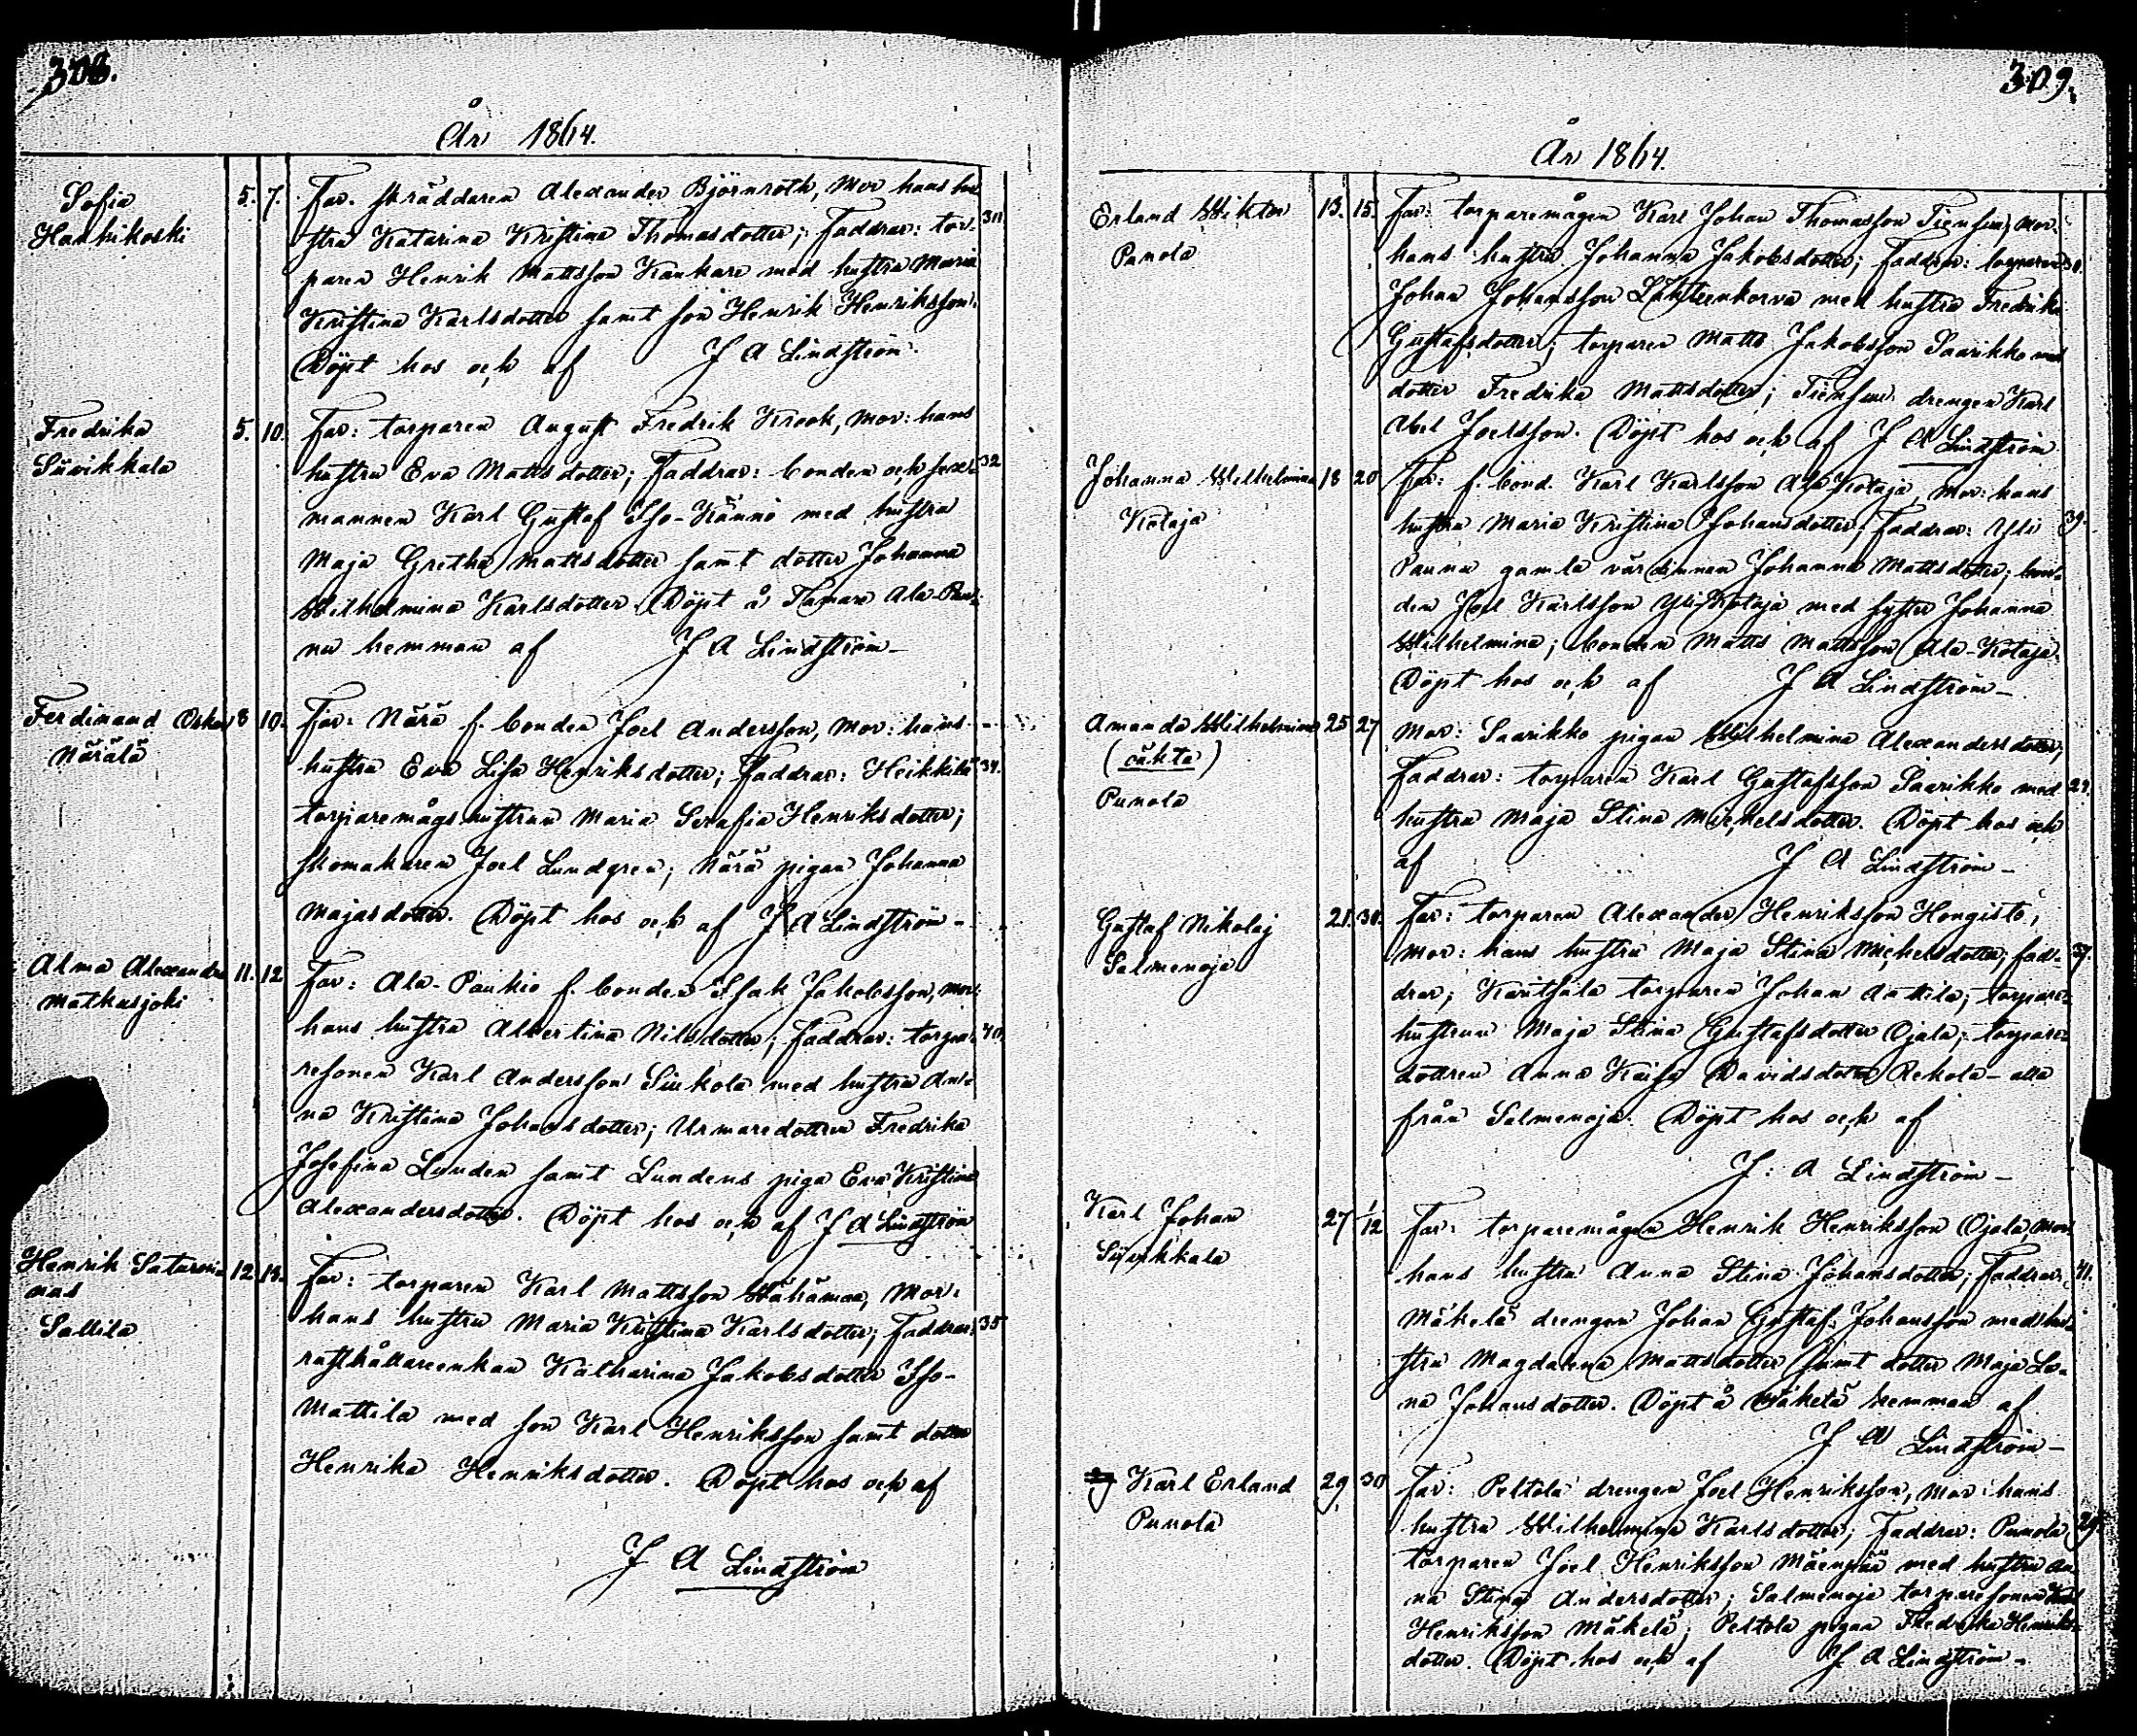 308.
År 1864.
Sofia
Hanhikoski
5. 7.
Far. skräddaren Alexander Björnroth, Mor hans hu
stru Katarina Kristina Thomasdotter; Faddrar: tor-
paren Henrik Mattsson Kankare med hustru Maria
Kristina Karlsdotter samt son Henrik Henriksson.
Döpt hos och af J A Lindström.
Fredrika
Suvikkala
5. 10.
Far: torparen August Fredrik Krook, Mor: hans
hustru Eva Mattsdotter; Faddrar: bonden och sex- 32
mannen Karl Gustaf Iso-Kännö med hustru
Maja Gretha Mattsdotter samt dotter Johanna
Wilhelmina Karlsdotter. Döpt å Tamare Ala-Pau-
nu hemman af J A Lindström
Ferdinand Oskar
Närälä
8 10.
Far: Närä f. bonden Joel Andersson, Mor: hans
hustru Eva Lisa Henriksdotter; Faddrar: Heikkilä 34.
torparemågshustrun Maria Serafia Henriksdotter;
skomakaren Joel Lundgren; Närä pigan Johanna
Majasdotter. Döpt hos och af J A Lindström
Alma Alexandra
Matkusjoki
11. 12
Far: Ala-Paukio f. bonden Isak Jakobsson, Mor:
hans hustru Albertina Nilsdotter; Faddrar: torpa- 40.
resonen Karl Andersson Siukola med hustru An-
na Kristina Johansdotter; Urmaredottren Fredrika
Josefina Lunden samt Lundens piga Eva Kristina
Alexandersdotter. Döpt hos och af J A Lindström
Henrik Saturni-
nus
Sallila
12. 13.
Far: torparen Karl Mattsson Wähämaa, Mor:
hans hustru Maria Kristina Karlsdotter; Faddrar: 35
rusthållareenkan Katharina Jakobsdotter Iso-
Mattila med son Karl Henriksson samt dotter
Henrika Henriksdotter. Döpt hos och af
J A Lindström
309.
År 1864.
Erland Wiktor
Punola
13. 15.
Far: torparemågen Karl Johan Thomasson Tiensuu, Mor:
hans hustru Johanna Jakobsdotter; Faddrar: torparen
Johan Johansson Lähteenkorva med hustru Fredrika
Gustafsdotter; torparen Matts Jakobsson Saarikko med
dotter Fredrika Mattsdotter; Tiensuu drengen Karl
Abel Joelsson. Döpt hos och af J A Lindström
Johanna Wilhelmina
Kotaja
18 20
Far: f. bond. Karl Karlsson Ala Kotaja, Mor: hans
hustru Maria Kristina Johansdotter; Faddrar: Yli 39.
Paunu gamla värdinnan Johanna Mattsdotter; bon-
den Joel Karlsson Yli Kotaja med syster Johanna
Wilhelmina; bonden Matts Mattsson Ala-Kotaja.
Döpt hos och af J A Lindström
Amanda Wilhelmina
(oäkta)
Punola
25 27
Mor: Saarikko pigan Wilhelmina Alexandersdotter;
Faddrar: torparen Karl Gustafsson Saarikko med 29.
hustru Maja Stina Michelsdotter. Döpt hos och
af J A Lindström
Gustaf Nikolaj
Salmenoja
Far: torparen Alexander Henriksson Hongisto,
Mor: hans hustru Maja Stina Michelsdotter; fad-
drar; Karitsala torparen Johan Anttila; torpare-
hustrun Maja Stina Gustafsdotter Ojala; torpare-
dottren Anna Kaisa Davidsdotter Rekola - alla
från Salmenoja. Döpt hos och af
J: A Lindström
Karl Johan
Suvikkala
27 1/12
Far: torparemågen Henrik Henriksson Ojala, Mor:
hans hustru Anna Stina Johansdotter; Faddrar: 41.
Mäkelä drengen Johan Gustaf Johansson med hu-
stru Magdalena Mattsdotter samt dotter Maja Le-
na Johansdotter. Döpt å Mäkelä hemman af
J A Lindström
Karl Erland
Punola
29 30
Far: Peltola drengen Joel Henriksson, Mor: hans
hustru Wilhelmina Karlsdotter; Faddrar: Punola 29.
torparen Joel Henriksson Mäenpää med hustru An-
na Stina Andersdotter; Salmenoja torparesonen Karl
Henriksson Mäkelä; Peltola pigan Fredrika Henriks-
dotter. Döpt hos och af J A Lindström